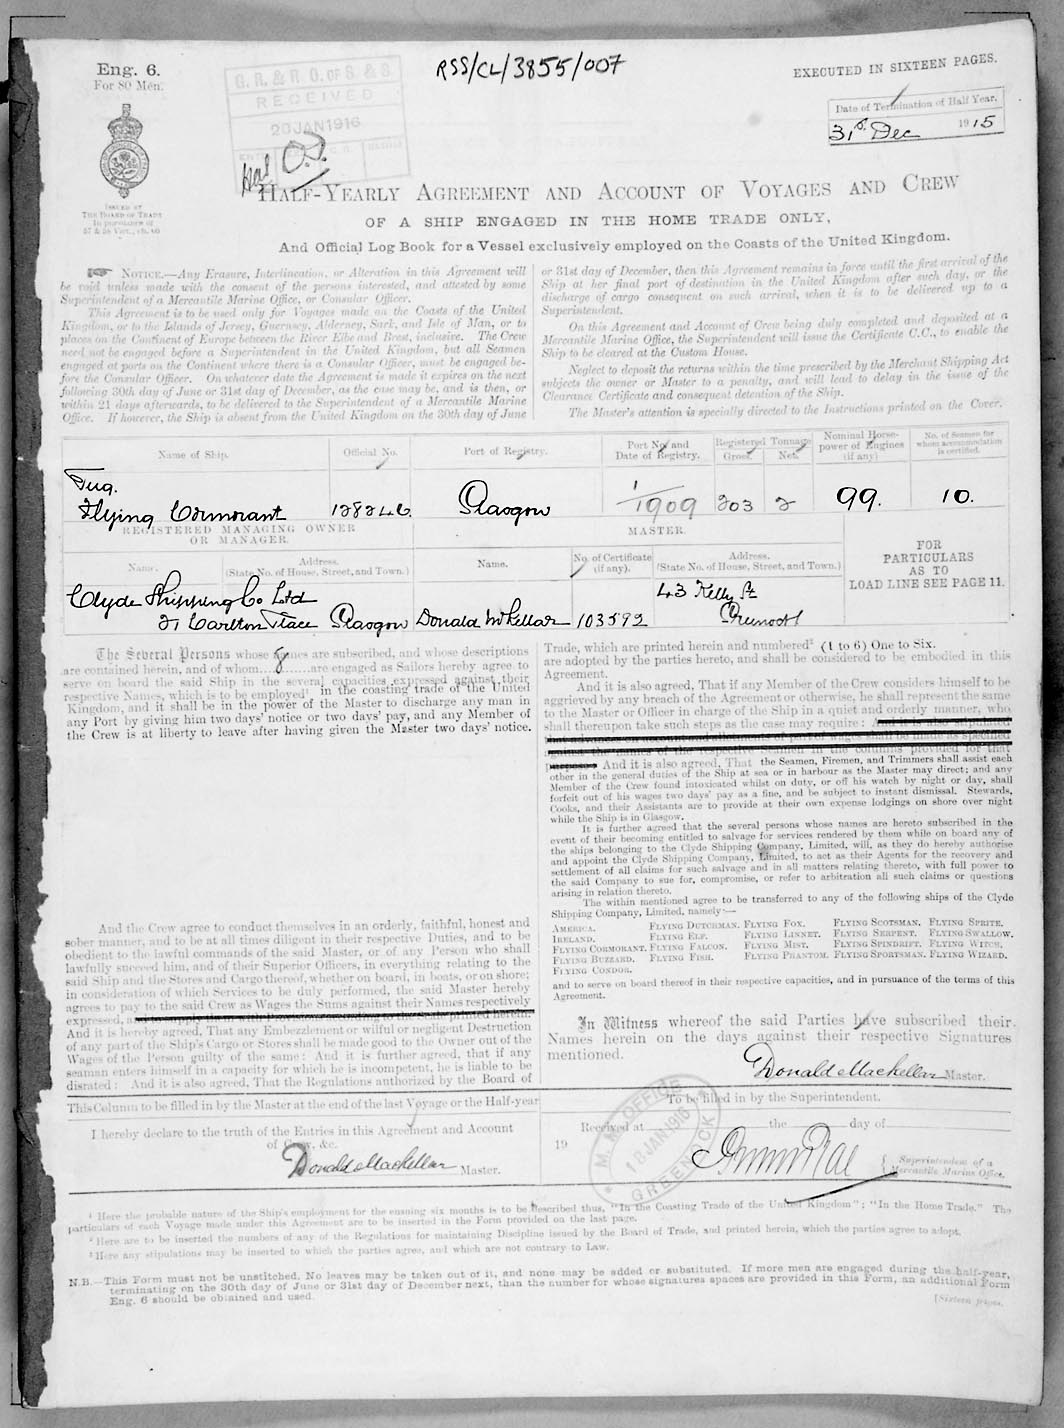 RSS/CL/3855/007
Eng. 6.
For 80 Men.
EXECUTED IN SIXTEEN PAGES.
G. R. & R. O. OF S. & S.
RECEIVED
20 JAN 1916
Date of Termination of Half Year.
31st Dec 1915
ISSUED BY
THE BOARD OF TRADE
In pursuance of
57 & 58 Vict., ch. 60
HALF-YEARLY AGREEMENT AND ACCOUNT OF VOYAGES AND CREW
OF A SHIP ENGAGED IN THE HOME TRADE ONLY,
And Official Log Book for a Vessel exclusively employed on the Coasts of the United Kingdom.
NOTICE.—Any Erasure, Interlineation, or Alteration in this Agreement will
be void unless made with the consent of the persons interested, and attested by some
Superintendent of a Mercantile Marine Office, or Consular Officer.
This Agreement is to be used only for Voyages made on the Coasts of the United
Kingdom, or to the Islands of Jersey, Guernsey, Alderney, Sark, and Isle of Man, or to
places on the Continent of Europe between the River Elbe and Brest, inclusive. The Crew
need not be engaged before a Superintendent in the United Kingdom, but all Seamen
engaged at ports on the Continent where there is a Consular Officer, must be engaged be-
fore the Consular Officer. On whatever date the Agreement is made it expires on the next
following 30th day of June or 31st day of December, as the case may be, and is then, or
within 21 days afterwards, to be delivered to the Superintendent of a Mercantile Marine
Office. If however, the Ship is absent from the United Kingdom on the 30th day of June
or 31st day of December, then this Agreement remains in force until the first arrival of the
Ship at her final port of destination in the United Kingdom after such day, or the
discharge of cargo consequent on such arrival, when it is to be delivered up to a
Superintendent.
On this Agreement and Account of Crew being duly completed and deposited at a
Mercantile Marine Office, the Superintendent will issue the Certificate C.C., to enable the
Ship to be cleared at the Custom House.
Neglect to deposit the returns within the time prescribed by the Merchant Shipping Act
subjects the owner or Master to a penalty, and will lead to delay in the issue of the
Clearance Certificate and consequent detention of the Ship.
The Master's attention is specially directed to the Instructions printed on the Cover.
Name of Ship. Official No. Port of Registry. Port No. and Date of Registry. Registered Tonnage Gross. Net. Nominal Horse-power of Engines (if any) No. of Seamen for whom accommodation is certified.
Tug.
Flying Cormorant 128246 Glasgow 1/1909 203 2 99. 10.
REGISTERED MANAGING OWNER
OR MANAGER.
MASTER.
FOR
PARTICULARS
AS TO
LOAD LINE SEE PAGE 11.
Name. Address. (State No. of House, Street, and Town.) Name. No. of Certificate (if any). Address. (State No. of House, Street, and Town.)
Clyde Shipping Co Ltd
21 Carlton Place Glasgow Donald McKellar 103592
43 Kelly St
Greenock
The Several Persons whose names are subscribed, and whose descriptions
are contained herein, and of whom 8 are engaged as Sailors hereby agree to
serve on board the said Ship in the several capacities expressed against their
respective Names, which is to be employed¹ in the coasting trade of the United
Kingdom, and it shall be in the power of the Master to discharge any man in
any Port by giving him two days' notice or two days' pay, and any Member of
the Crew is at liberty to leave after having given the Master two days' notice.
And the Crew agree to conduct themselves in an orderly, faithful, honest and
sober manner, and to be at all times diligent in their respective Duties, and to be
obedient to the lawful commands of the said Master, or of any Person who shall
lawfully succeed him, and of their Superior Officers, in everything relating to the
said Ship and the Stores and Cargo thereof, whether on board, in boats, or on shore;
in consideration of which Services to be duly performed, the said Master hereby
agrees to pay to the said Crew as Wages the Sums against their Names respectively
expressed,
And it is hereby agreed, That any Embezzlement or wilful or negligent Destruction
of any part of the Ship's Cargo or Stores shall be made good to the Owner out of the
Wages of the Person guilty of the same: And it is further agreed, that if any
seaman enters himself in a capacity for which he is incompetent, he is liable to be
disrated: And it is also agreed, That the Regulations authorized by the Board of
Trade, which are printed herein and numbered² (1 to 6) One to Six.
are adopted by the parties hereto, and shall be considered to be embodied in this
Agreement.
And it is also agreed, That if any Member of the Crew considers himself to be
aggrieved by any breach of the Agreement or otherwise, he shall represent the same
to the Master or Officer in charge of the Ship in a quiet and orderly manner, who
shall thereupon take such steps as the case may require:
And it is also agreed, That the Seamen, Firemen, and Trimmers shall assist each
other in the general duties of the Ship at sea or in harbour as the Master may direct; and any
Member of the Crew found intoxicated whilst on duty, or off his watch by night or day, shall
forfeit out of his wages two days' pay as a fine, and be subject to instant dismissal. Stewards,
Cooks, and their Assistants are to provide at their own expense lodgings on shore over night
while the Ship is in Glasgow.
It is further agreed that the several persons whose names are hereto subscribed in the
event of their becoming entitled to salvage for services rendered by them while on board any of
the ships belonging to the Clyde Shipping Company, Limited, will, as they do hereby authorise
and appoint the Clyde Shipping Company, Limited, to act as their Agents for the recovery and
settlement of all claims for such salvage and in all matters relating thereto, with full power to
the said Company to sue for, compromise, or refer to arbitration all such claims or questions
arising in relation thereto.
The within mentioned agree to be transferred to any of the following ships of the Clyde
Shipping Company, Limited, namely:—
AMERICA. FLYING DUTCHMAN. FLYING FOX. FLYING SCOTSMAN. FLYING SPRITE.
IRELAND. FLYING ELF. FLYING LINNET. FLYING SERPENT. FLYING SWALLOW.
FLYING CORMORANT. FLYING FALCON. FLYING MIST. FLYING SPINDRIFT. FLYING WITCH.
FLYING BUZZARD. FLYING FISH. FLYING PHANTOM. FLYING SPORTSMAN. FLYING WIZARD.
FLYING CONDOR.
and to serve on board thereof in their respective capacities, and in pursuance of the terms of this
Agreement.
In Witness whereof the said Parties have subscribed their
Names herein on the days against their respective Signatures
mentioned.
Donald Mackellar Master.
This Column to be filled in by the Master at the end of the last Voyage or the Half-year
I hereby declare to the truth of the Entries in this Agreement and Account
of Crew, &c.
Donald Mackellar Master.
To be filled in by the Superintendent.
Received at the day of
19
M. M. OFFICE
18 JAN 1916
GREENOCK
Superintendent of a
Mercantile Marine Office.
¹ Here the probable nature of the Ship's employment for the ensuing six months is to be described thus, "In the Coasting Trade of the United Kingdom"; "In the Home Trade." The
particulars of each Voyage made under this Agreement are to be inserted in the Form provided on the last page.
² Here are to be inserted the numbers of any of the Regulations for maintaining Discipline issued by the Board of Trade, and printed herein, which the parties agree to adopt.
³ Here any stipulations may be inserted to which the parties agree, and which are not contrary to Law.
N.B.—This Form must not be unstitched. No leaves may be taken out of it, and none may be added or substituted. If more men are engaged during the half-year,
terminating on the 30th day of June or 31st day of December next, than the number for whose signatures spaces are provided in this Form, an additional Form
Eng. 6 should be obtained and used.
[Sixteen pages.